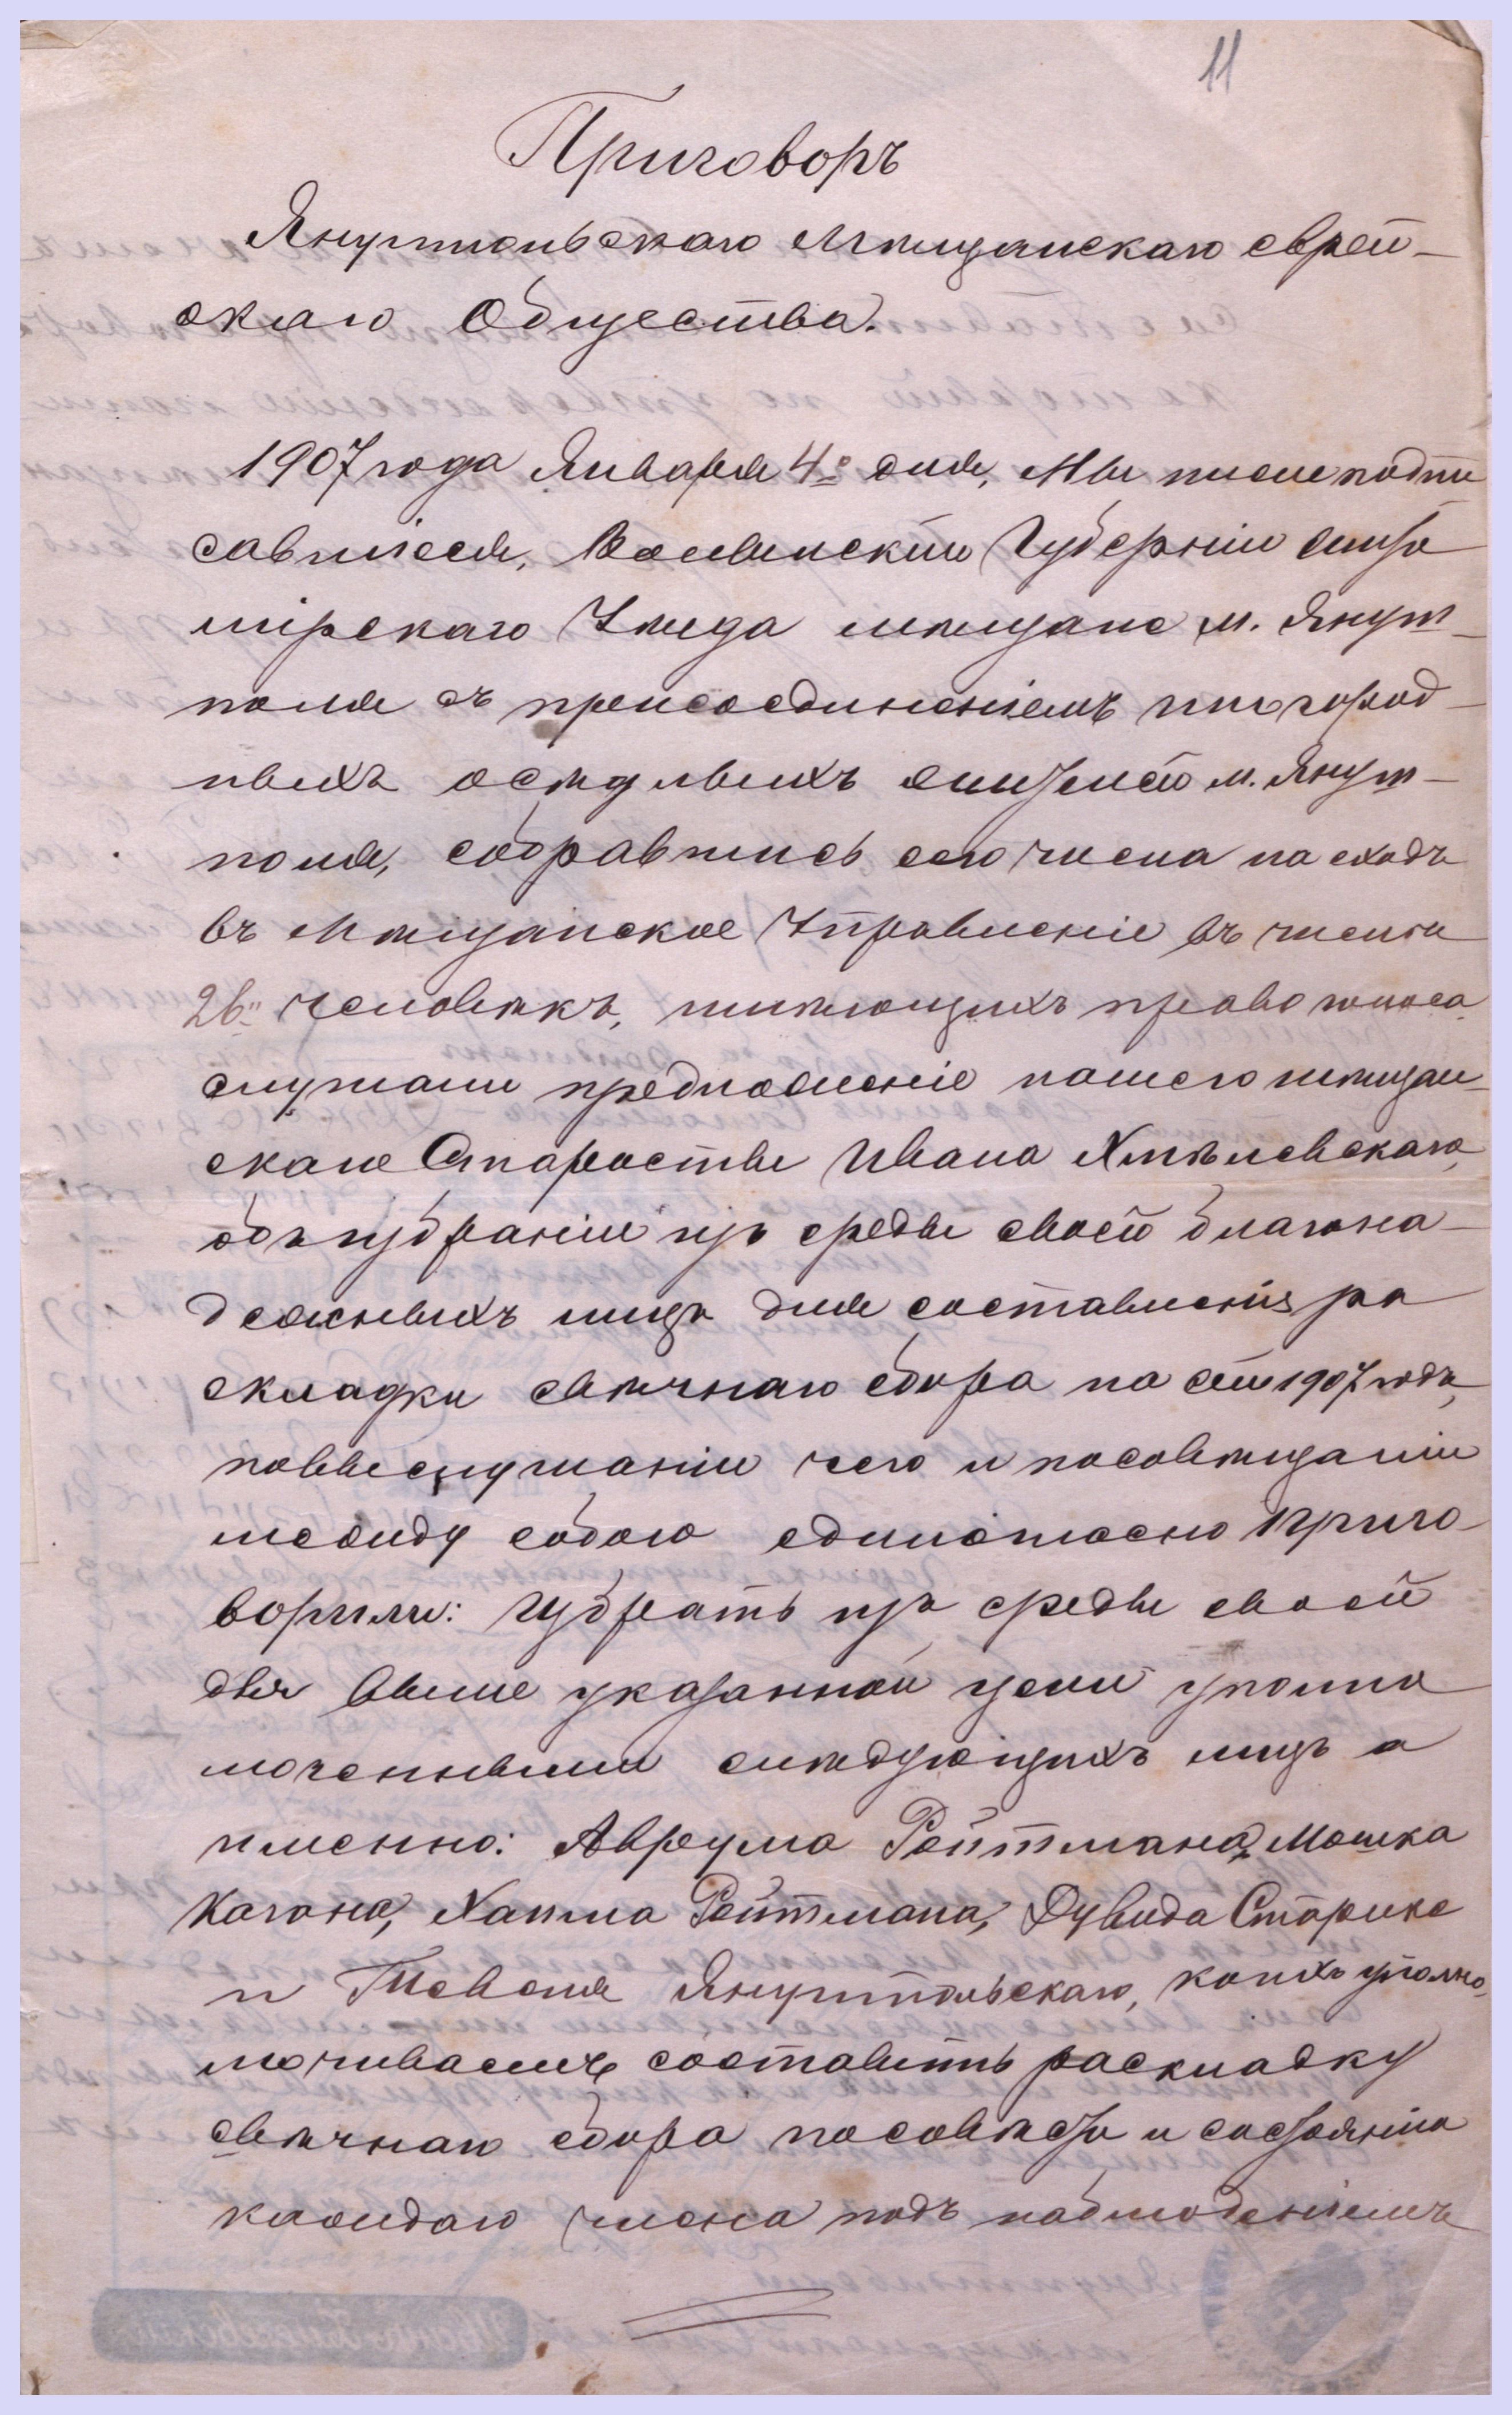 11
Приговоръ
Янушпольскаго Мѣщанскаго еврей-
скаго Общества.
1907 года Января 4º дня, Мы нисже подпи
савшіеся, Волынской Губерніи Жито
мірскаго Уѣзда мѣщане м. Януш-
поля съ присоединеніемъ иногород-
ныхъ осѣдлыхъ жителей м. Януш-
поля, собравшись сего числа на сходъ
въ Мѣщанское Управленіе въ числѣ
26" человѣкъ, имѣющихъ право голоса
слушали предложеніе нашего мѣщан-
скаго Старосты Ивана Хмѣлевскаго,
объ избраніи изъ среды своей благона-
дежныхъ лицъ для составленія ра
складки свѣчнаго сбора на сей 1907 годъ,
по выслушаніи чего и посовѣщаніи
между собою единогласно приго-
ворили: Избрать изъ среды своей
для выше указанной цели уполно
моченными слѣдующихъ лицъ а
именно: Аврума Ройтмана, Мошка
Когана, Хаима Ройтмана, Дувида Старика
и Шевеля Янушпольскаго, коихъ уполно-
мочиваемъ составить раскладку
свѣчнаго сбора по совѣсти и состоянію
каждаго члена подъ наблюденіемъ